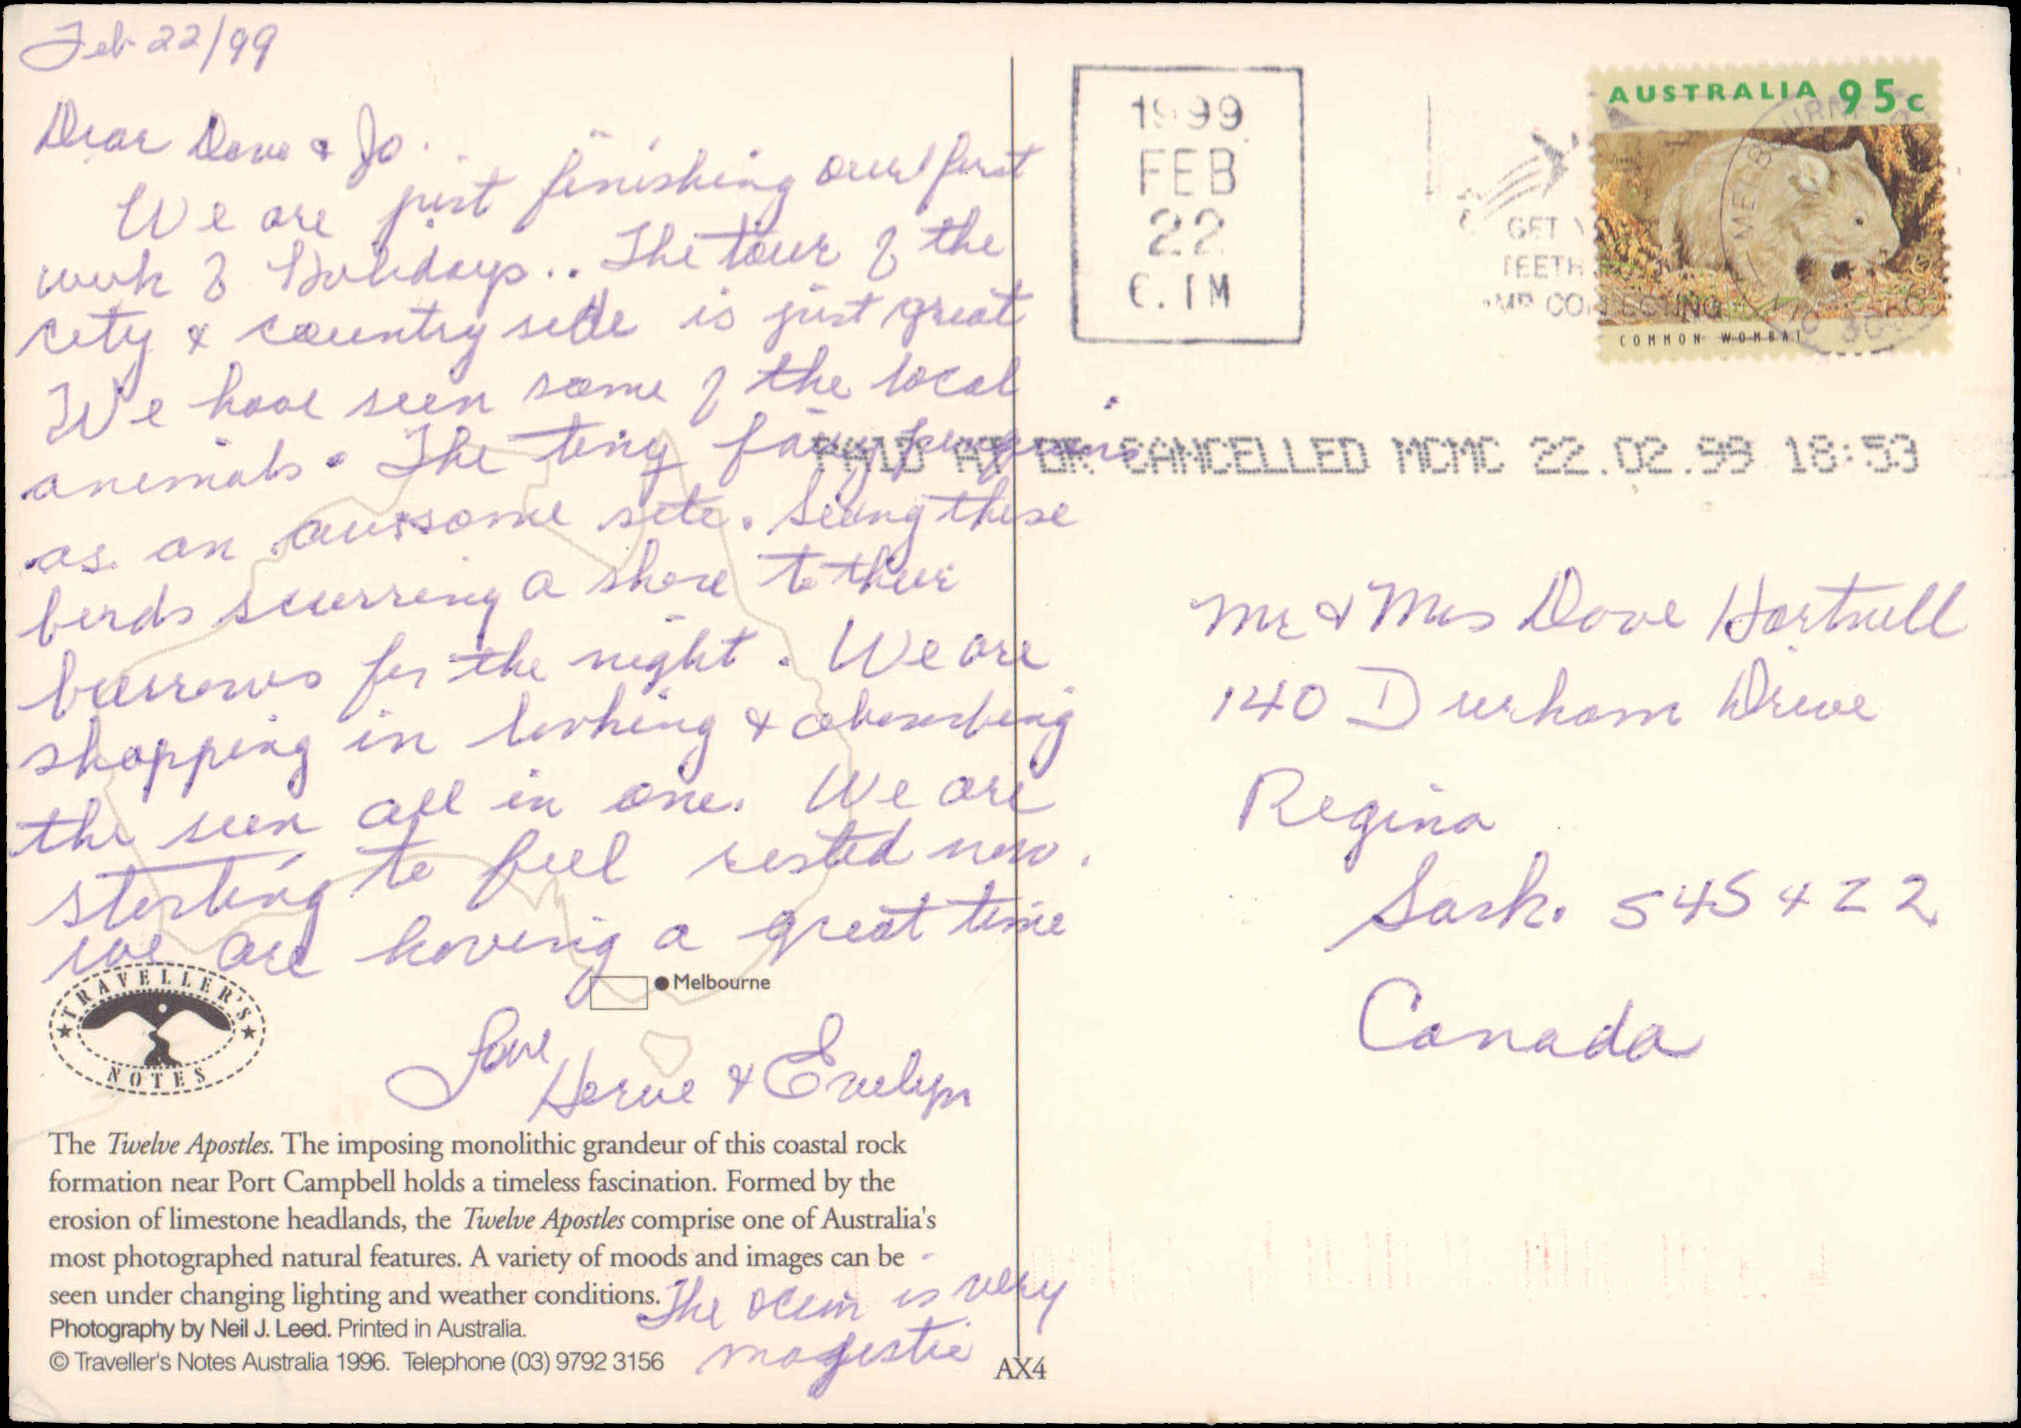 Feb 22/99
Dear Dave & Jo.
We are just finishing our first
week of Holidays.. The tour of the
city & country side is just great
We have seen some of the local
animals. The tiny fairy penguins
as an awssome site. Seeing these
birds scurring a shore to their
burrows for the night. We are
shopping in looking & abosorbing
the seen all in one. We are
starting to feel rested now.
we are having a great time
Love
Herve & Evelyn
TRAVELLER'S
NOTES
Melbourne
The Twelve Apostles. The imposing monolithic grandeur of this coastal rock
formation near Port Campbell holds a timeless fascination. Formed by the
erosion of limestone headlands, the Twelve Apostles comprise one of Australia's
most photographed natural features. A variety of moods and images can be
seen under changing lighting and weather conditions.
Photography by Neil J. Leed. Printed in Australia.
© Traveller's Notes Australia 1996. Telephone (03) 9792 3156
The ocein is very
magestic
AX4
1999
FEB
22
GET
TEETH
COLLECTING
AUSTRALIA 95c
MELBOURNE
COMMON WOMBAT
PAID AT OR CANCELLED MCMC 22.02.99 18:53
Mr & Mrs Dave Hartnell
140 Durham Drive
Regina
Sask. S4S 4Z2
Canada